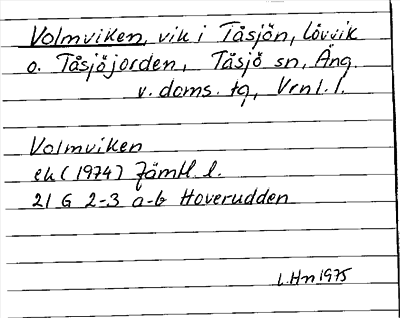 Volmviken, vik i Tåsjön, Lövvik
o. Tåsjöjorden, Tåsjö sn, Ång.
v. doms. tg, Vrnl. l.
Volmviken
ek (1974) Jämtl. l.
21 G 2-3 a-b Hoverudden
L. Hn 1975